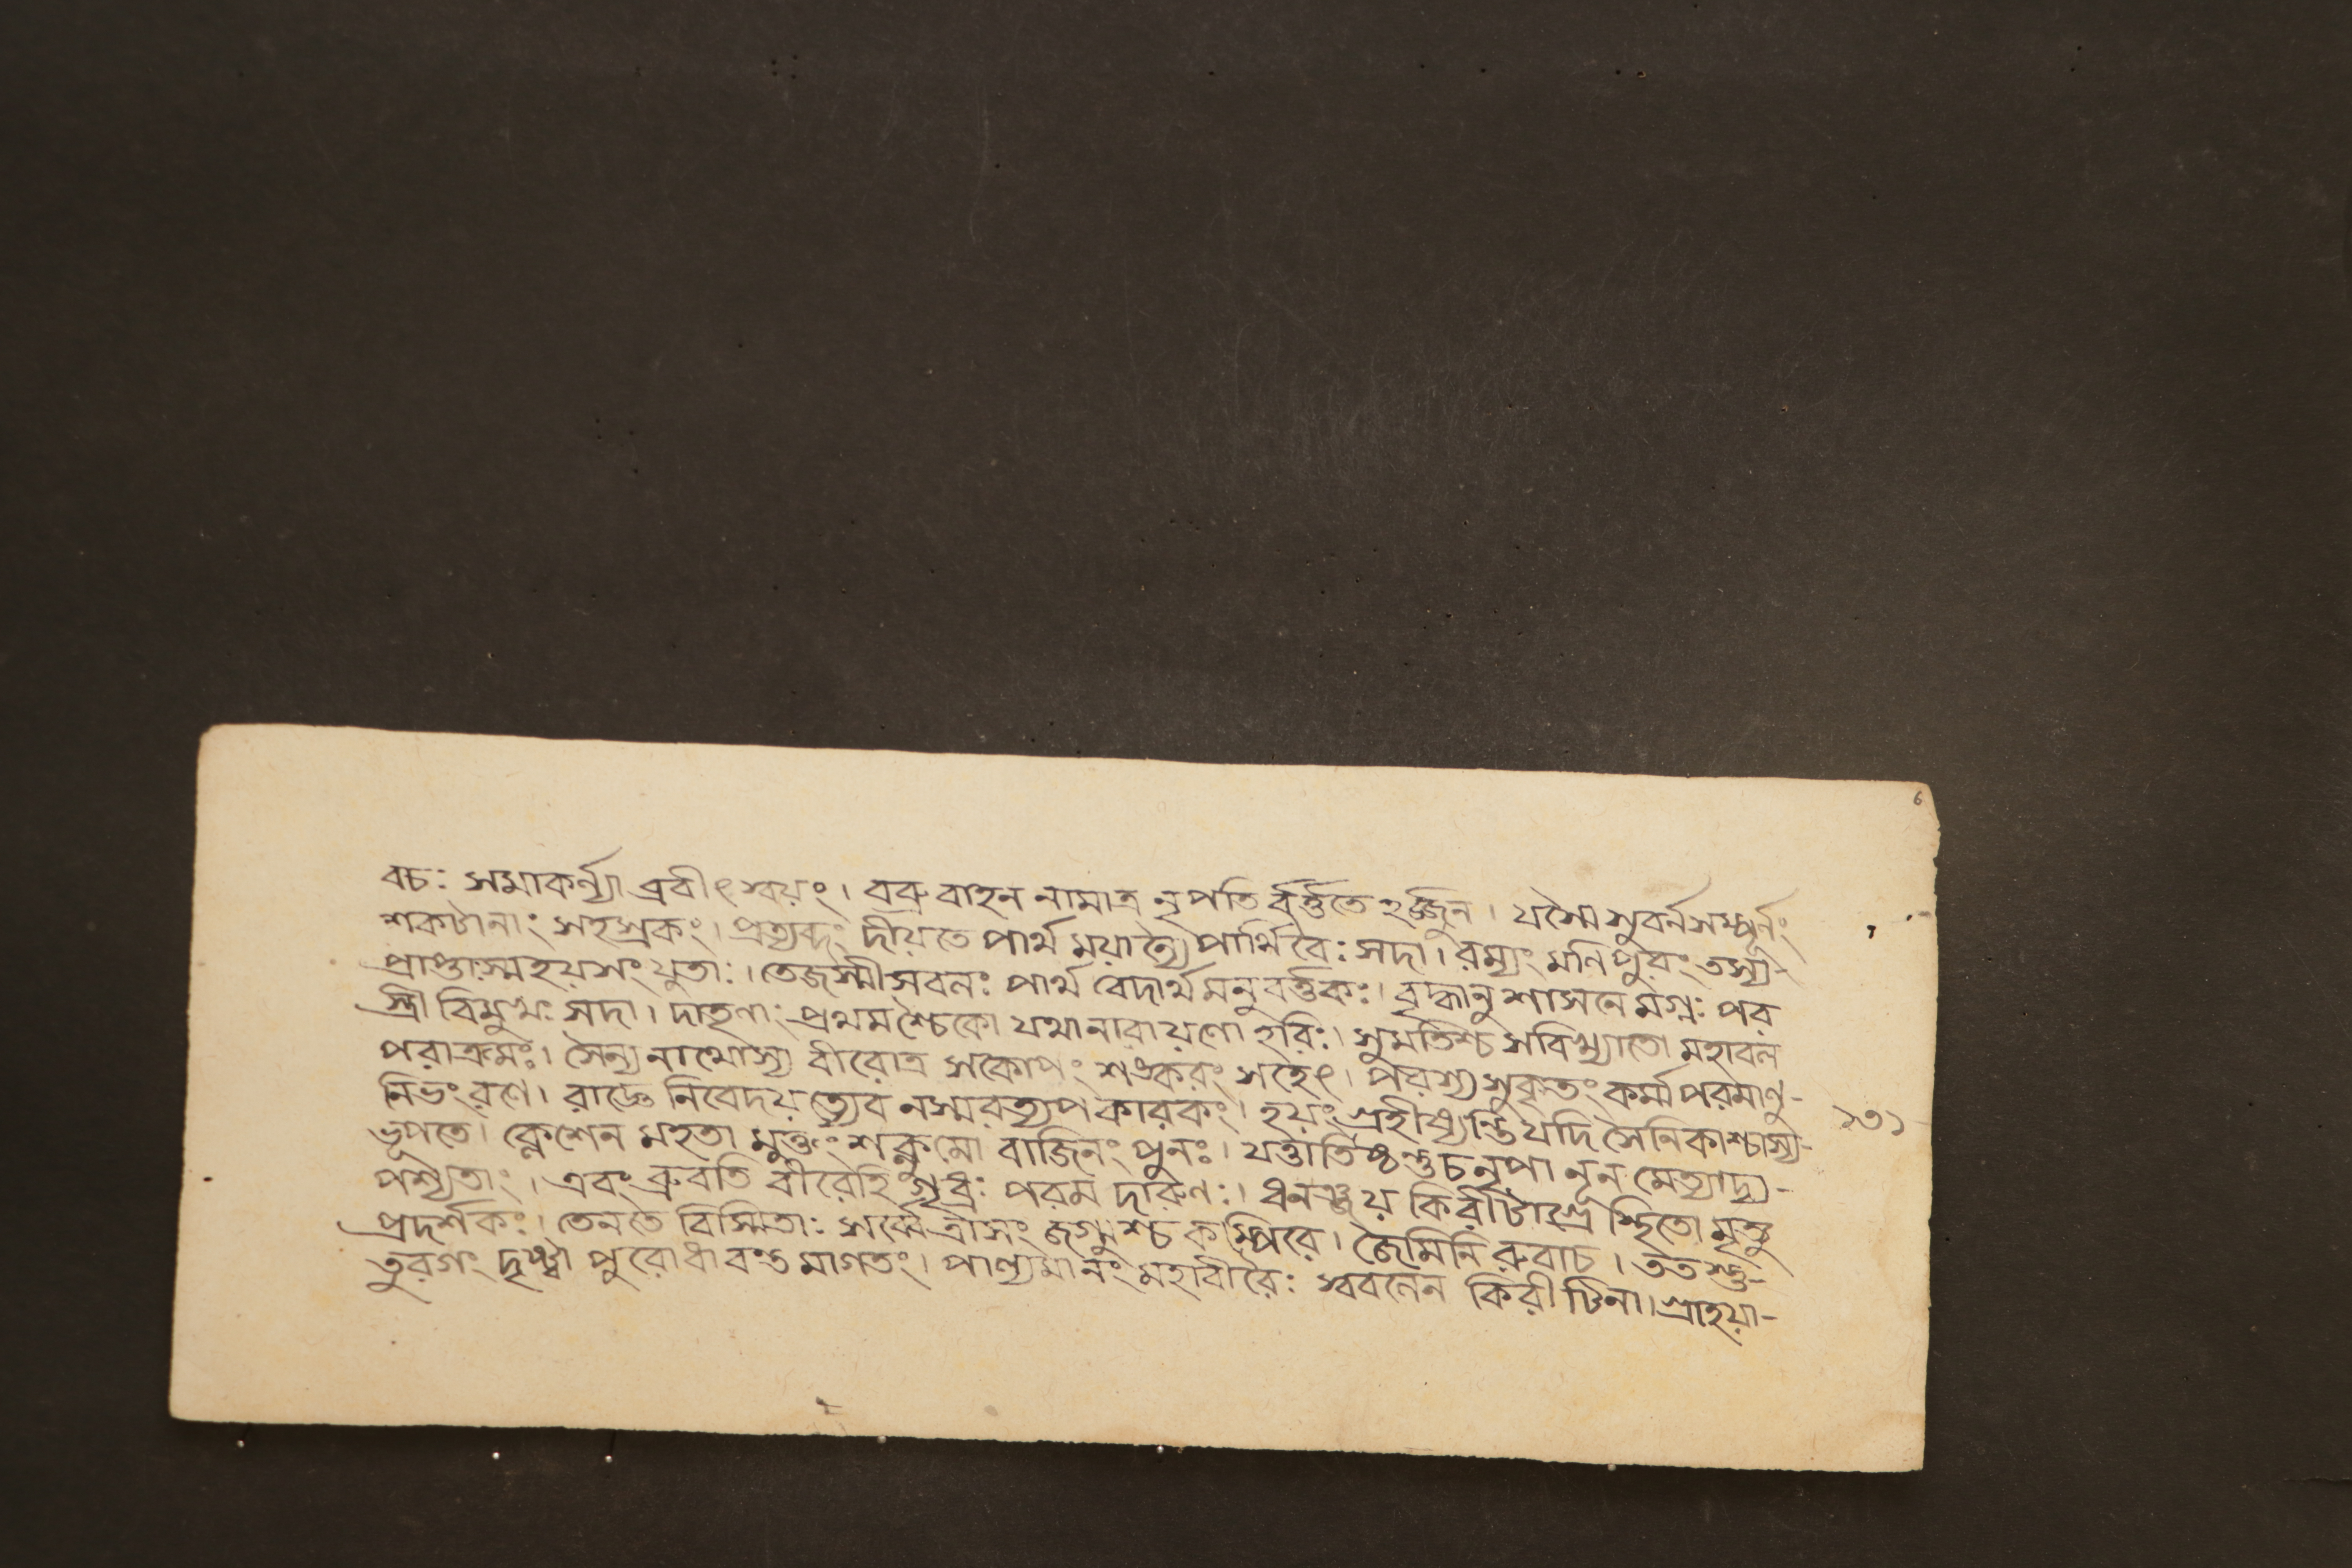 6
বচঃ সমাকর্ন্যা ব্রবীৎ স্বয়ং। বব্রু বাহন নামাত্র নৃপতি র্বর্ত্ততে হর্জ্জুন। যস্মৈ সুবর্ন সম্পূর্নং
শকটানাং সহস্রকং। প্রত্যব্দং দীয়তে পার্থ ময়া পার্থিবৈঃ সদা। রম্যং মনিপুরং তস্য-
প্রাপ্তাস্ম হয়সং যুতাঃ। তেজস্মী সবলঃ পার্থ বেদার্থ মনুবর্ত্তকঃ। বৃদ্ধানু শাসনে মগ্নঃ পর
স্ত্রী বিমুখঃ সদা। দাতৃণাং প্রথম শ্চৈকো যথা নারায়ণো হরিঃ। সুমতিশ্চ সবিখ্যাতো মহাবল
পরাক্রমঃ। সৈন্য নাথোস্য বীরোত্র সকোপং শঙ্করং সহেৎ। পরস্য সুকৃতং কর্ম্ম পরমাণু-
নিভং রণে। রাজ্ঞে নিবেদয় ত্যেব নস্মরত্যপ কারকং। হয়ং গ্রহীষ্যন্তি যদি সৈনিকাশ্চাস্য-
ভূপতে। ক্লেশেন মহতা মুক্তং শক্নুমো বাজিনং পুনঃ। যত্তাতিষ্ঠন্তু চ নৃপা নূন মেত্যাদ্য-
পশ্যতাং। এবং ব্রুবতি বীরেহি গৃধ্রঃ পরম দারুণঃ। ধনঞ্জয় কিরীটাগ্রে স্থিতো মৃত্যু
প্রদর্শকঃ। তেনতে বিস্মিতাঃ সর্ব্বে ত্রাসং জগ্মুশ্চ কম্পিরে। জৈমিনি রুবাচ। তত স্তু-
তুরগং দৃষ্ট্বা পুরো ধাবন্ত মাগতং। পাল্যমানং মহাবীরৈঃ শ্ববনেন কিরীটিনা। গ্রাহয়া-
১৩১